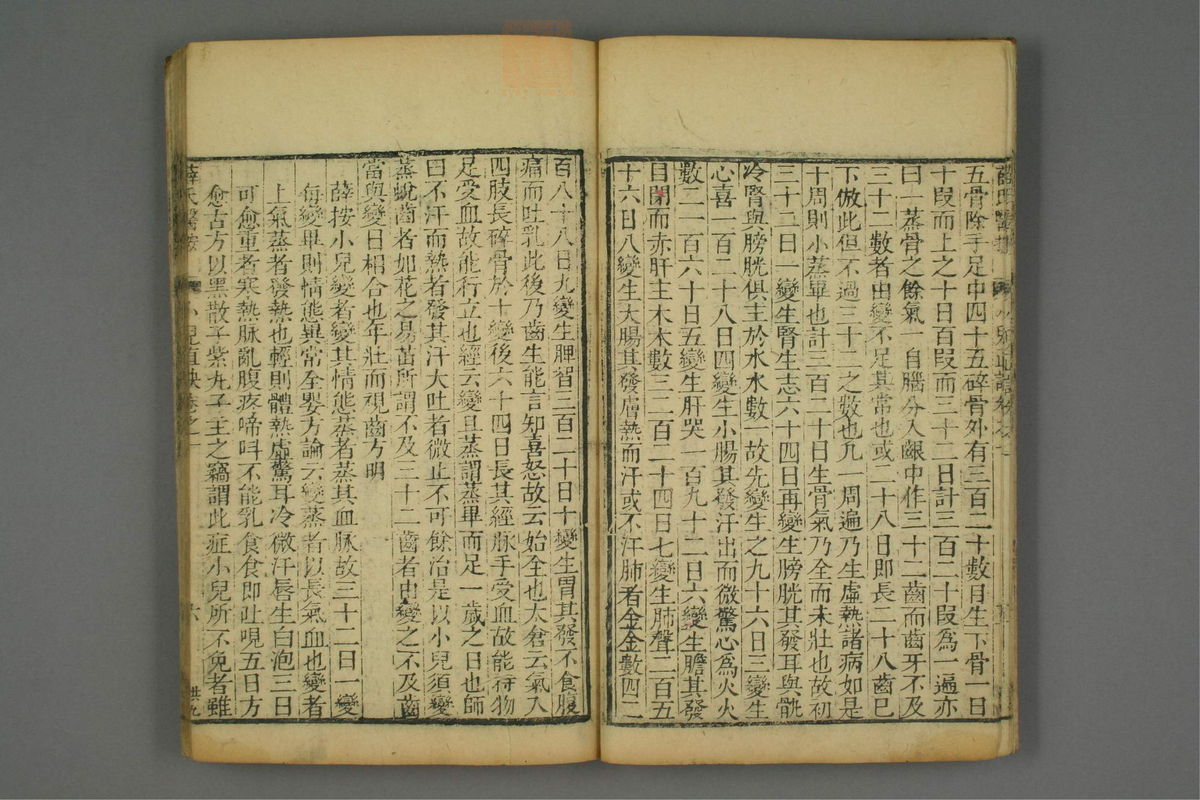 五骨除手足中四十五碎骨外有三百二十數自生下骨一日
十段而上之十日百段而三十二日計三百二十段為一遍亦
曰一蒸骨之餘氣自腦分入齦中作三十二齒而齒牙不及
三十二數者由變不足其常也或二十八日即長二十八齒已
下倣此但不過三十二之數也凡一周遍乃生虛熱諸病如是
十周則小蒸畢也計三百二十日生骨氣乃全而未壯也故初
三十二日一變生腎生志六十四日再變生膀胱其發耳與骩
冷腎與膀胱俱主於水水數一故先變生之九十六日三變生
心喜一百二十八日四變生小腸其發汗出而微驚心為火火
數二一百六十日五變生肝哭一百九十二日六變生膽其發
目閉而赤肝主木木數三二百二十四日七變生肺聲二百五
十六日八變生大腸其發膚熱而汗或不汗肺者金金數四二
百八十八日九變生脾智三百二十日十變生胃其發不食腹
痛而吐乳此後乃齒生能言知喜怒故云始全也太倉云氣入
四肢長碎骨於十變後六十四日長其經脉手受血故能持物
足受血故能行立也經云變且蒸謂蒸畢而足一歲之日也師
曰不汗而熱者發其汗大吐者微止不可餘治是以小兒須變
蒸蛻齒者如花之易苗所謂不及三十二齒者由變之不及齒
當與變日相合也年壯而視齒方明
薛按小兒變者變其情態蒸者蒸其血脉故三十二日一變
每變畢則情態異常全嬰方論云變蒸者以長氣血也變者
上氣蒸者發熱也輕則體熱虛驚耳冷微汗唇生白泡三日
可愈重者寒熱脉亂腹疼啼叫不能乳食食即吐哯五日方
愈古方以黑散子紫丸子主之竊謂此症小兒所不免者雖
薛氏醫按 小兒直訣卷之一 六